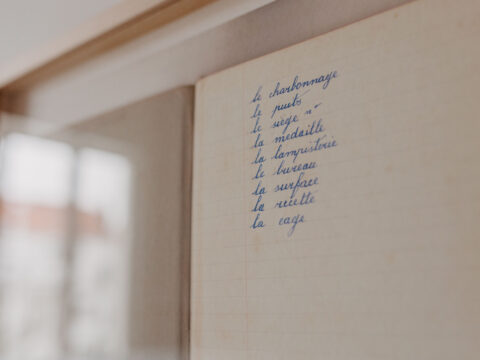 le charbonnage
le puits
le siège n°
la médaille
la lampisterie
le bureau
la surface
la recette
la cage